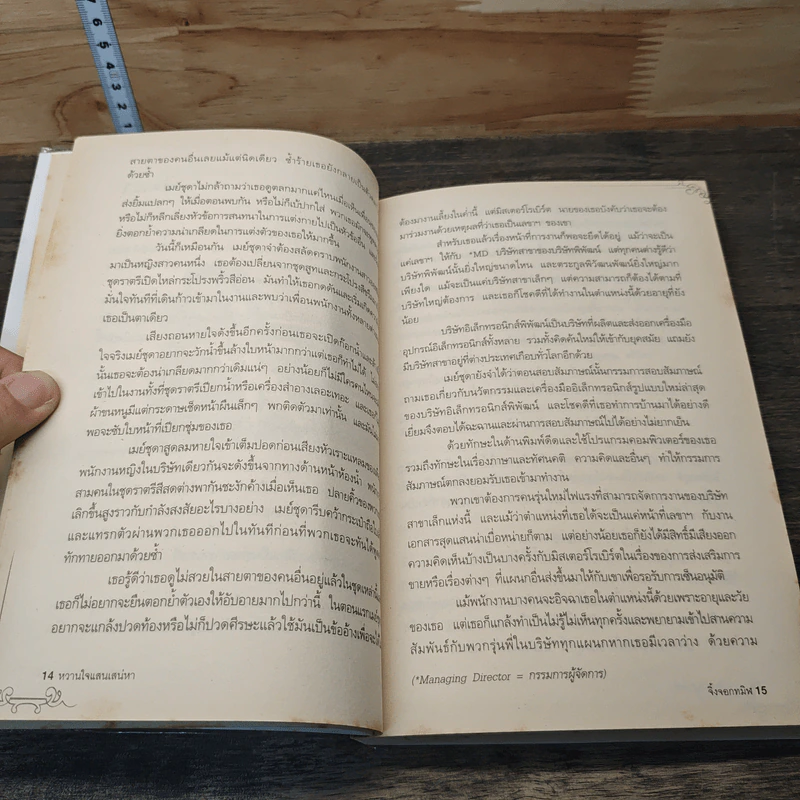 7
6
5
4
3
2
สายตาของคนอื่นเลยแม้แต่นิดเดียว ซ้ำร้ายเธอยังกลายเป็น
ด้วยซ้ำ
เมย์ซูดาไม่กล้าถามว่าเธอดูตลกมากแค่ไหนเมื่อ
ส่งยิ้มแปลกๆ ให้เมื่อตอนพบกัน หรือไม่ก็เบ้ปากใส่
หรือไม่ก็หลีกเลี่ยงหัวข้อการสนทนาในการแต่งกายไปเป็น
ยิ่งตอกย้ำความน่าเกลียดในการแต่งตัวของเธอให้มากขึ้น
วันนี้ก็เหมือนกัน เมย์ซูดาจำต้องสลัดคราบพนักงาน
มาเป็นหญิงสาวคนหนึ่ง เธอต้องเปลี่ยนจากชุดสูทและกระโปรง
ชุดราตรีเปิดไหล่กระโปรงพริ้วสีอ่อน มันทำให้เธอกดดันและเริ่ม
มั่นใจทันทีที่เดินก้าวเข้ามาในงานและพบว่าเพื่อนพนักงานทั้งหลาย
เธอเป็นตาเดียว
เสียงถอนหายใจดังขึ้นอีกครั้งก่อนเธอจะเปิดก๊อกน้ำ
ใจจริงเมย์ซูดาอยากจะวักน้ำขึ้นล้างใบหน้ามากกว่าแต่เธอก็ทำไม่ได้
นั้นเธอจะต้องน่าเกลียดมากกว่าเดิมแน่ๆ อย่างน้อยก็ไม่มีใครคน
เข้าไปในงานทั้งที่ชุดราตรีเปียกน้ำหรือเครื่องสำอางเลอะเทอะ
ผ้าขนหนูมีแต่กระดาษเช็ดหน้าผืนเล็กๆ พกติดตัวมาเท่านั้น
พอจะซับใบหน้าที่เปียกชุ่มของเธอ
เมย์ซูดาสูดลมหายใจเข้าเต็มปอดก่อนเสียงหัวเราะแหลม
พนักงานหญิงในบริษัทเดียวกันจะดังขึ้นจากทางด้านหน้าห้องน้ำ
สามคนในชุดราตรีสีสดต่างพากันชะงักค้างเมื่อเห็นเธอ ปลายคิ้วของพวก
เลิกขึ้นสูงราวกับกำลังสงสัยอะไรบางอย่าง เมย์ซูดารีบคว้ากระเป๋าถือ
และแทรกตัวผ่านพวกเธอออกไปในทันทีก่อนที่พวกเธอจะทันได้พูด
ทักทายออกมาด้วยซ้ำ
เธอรู้ดีว่าเธอดูไม่สวยในสายตาของคนอื่นอยู่แล้วในชุดเหล่านี้
เธอก็ไม่อยากจะยืนตอกย้ำตัวเองให้อับอายมากไปกว่านี้ ในตอนแรก
อยากจะแกล้งปวดท้องหรือไม่ก็ปวดศีรษะแล้วใช้มันเป็นข้ออ้างเพื่อจะได้
14 หวานใจแสนเสน่หา
ต้องมางานเลี้ยงในค่ำนี้ แต่มิสเตอร์โรเบิร์ต นายของเธอบังคับว่าเธอจะต้อง
มาร่วมงานด้วยเหตุผลที่ว่าเธอเป็นเลขาฯ ของเขา
สำหรับเธอแล้วเรื่องหน้าที่การงานก็พอจะยืดได้อยู่ แม้ว่าจะเป็น
แค่เลขาฯ ให้กับ *MD บริษัทสาขาของบริษัทพิพัฒน์ แต่ทุกคนต่างรู้ดีว่า
บริษัทพิพัฒน์นั้นยิ่งใหญ่ขนาดไหน และตระกูลพิวัฒนพัฒน์ยิ่งใหญ่มาก
เพียงใด แม้จะเป็นแค่บริษัทสาขาเล็กๆ แต่ความสามารถก็ต้องได้ตามที่
บริษัทใหญ่ต้องการ และเธอก็โชคดีที่ได้ทำงานในตำแหน่งนี้ด้วยอายุที่ยัง
น้อย
บริษัทอิเล็กทรอนิกส์พิพัฒน์เป็นบริษัทที่ผลิตและส่งออกเครื่องมือ
อุปกรณ์อิเล็กทรอนิกส์ทั้งหลาย รวมทั้งคิดค้นใหม่ให้เข้ากับยุคสมัย แถมยัง
มีบริษัทสาขาอยู่ที่ต่างประเทศเกือบทั่วโลกอีกด้วย
เมย์ซูดายังจำได้ว่าตอนสอบสัมภาษณ์นั้นกรรมการสอบสัมภาษณ์
ถามเธอเกี่ยวกับนวัตกรรมและเครื่องมืออิเล็กทรอนิกส์รูปแบบใหม่ล่าสุด
ของบริษัทอิเล็กทรอนิกส์พิพัฒน์ และโชคดีที่เธอทำการบ้านมาได้อย่างดี
เยี่ยมจึงตอบได้ฉะฉานและผ่านการสอบสัมภาษณ์ไปได้อย่างไม่ยากเย็น
ด้วยทักษะในด้านพิมพ์ดีดและใช้โปรแกรมคอมพิวเตอร์ของเธอ
รวมถึงทักษะในเรื่องภาษาและทัศนคติ ความคิดและอื่นๆ ทำให้กรรมการ
สัมภาษณ์ตกลงยอมรับเธอเข้ามาทำงาน
พวกเขาต้องการคนรุ่นใหม่ไฟแรงที่สามารถจัดการงานของบริษัท
สาขาเล็กแห่งนี้ และแม้ว่าตำแหน่งที่เธอได้จะเป็นแค่หน้าที่เลขาฯ กับงาน
เอกสารสุดแสนน่าเบื่อหน่ายก็ตาม แต่อย่างน้อยเธอก็ยังได้มีสิทธิ์มีเสียงออก
ความคิดเห็นบ้างเป็นบางครั้งกับมิสเตอร์โรเบิร์ตในเรื่องของการส่งเสริมการ
ขายหรือเรื่องต่างๆ ที่แผนกอื่นส่งขึ้นมาให้กับเขาเพื่อรอรับการเซ็นอนุมัติ
แม้พนักงานบางคนจะอิจฉาเธอในตำแหน่งนี้ด้วยเพราะอายุและวัย
ของเธอ แต่เธอก็แกล้งทำเป็นไม่รู้ไม่เห็นทุกครั้งและพยายามเข้าไปสานความ
สัมพันธ์กับพวกรุ่นพี่ในบริษัททุกแผนกหากเธอมีเวลาว่าง ด้วยความ
(*Managing Director = กรรมการผู้จัดการ)
จิ้งจอกทมิฬ 15